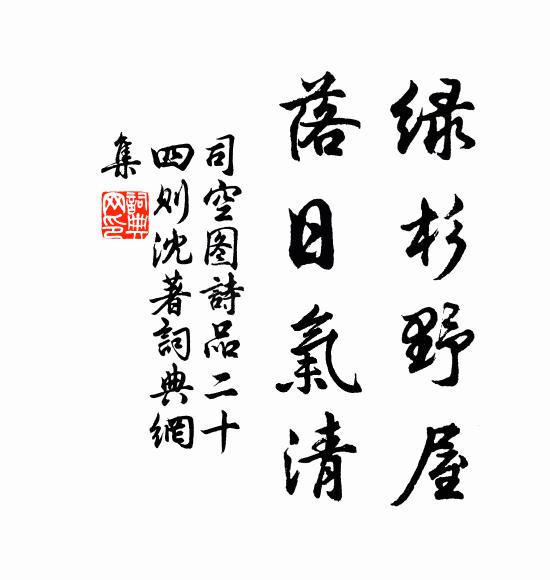 绿杉野屋
落日氣清
司空图詩品二十
四则沈著詞典網
集
詞典網印